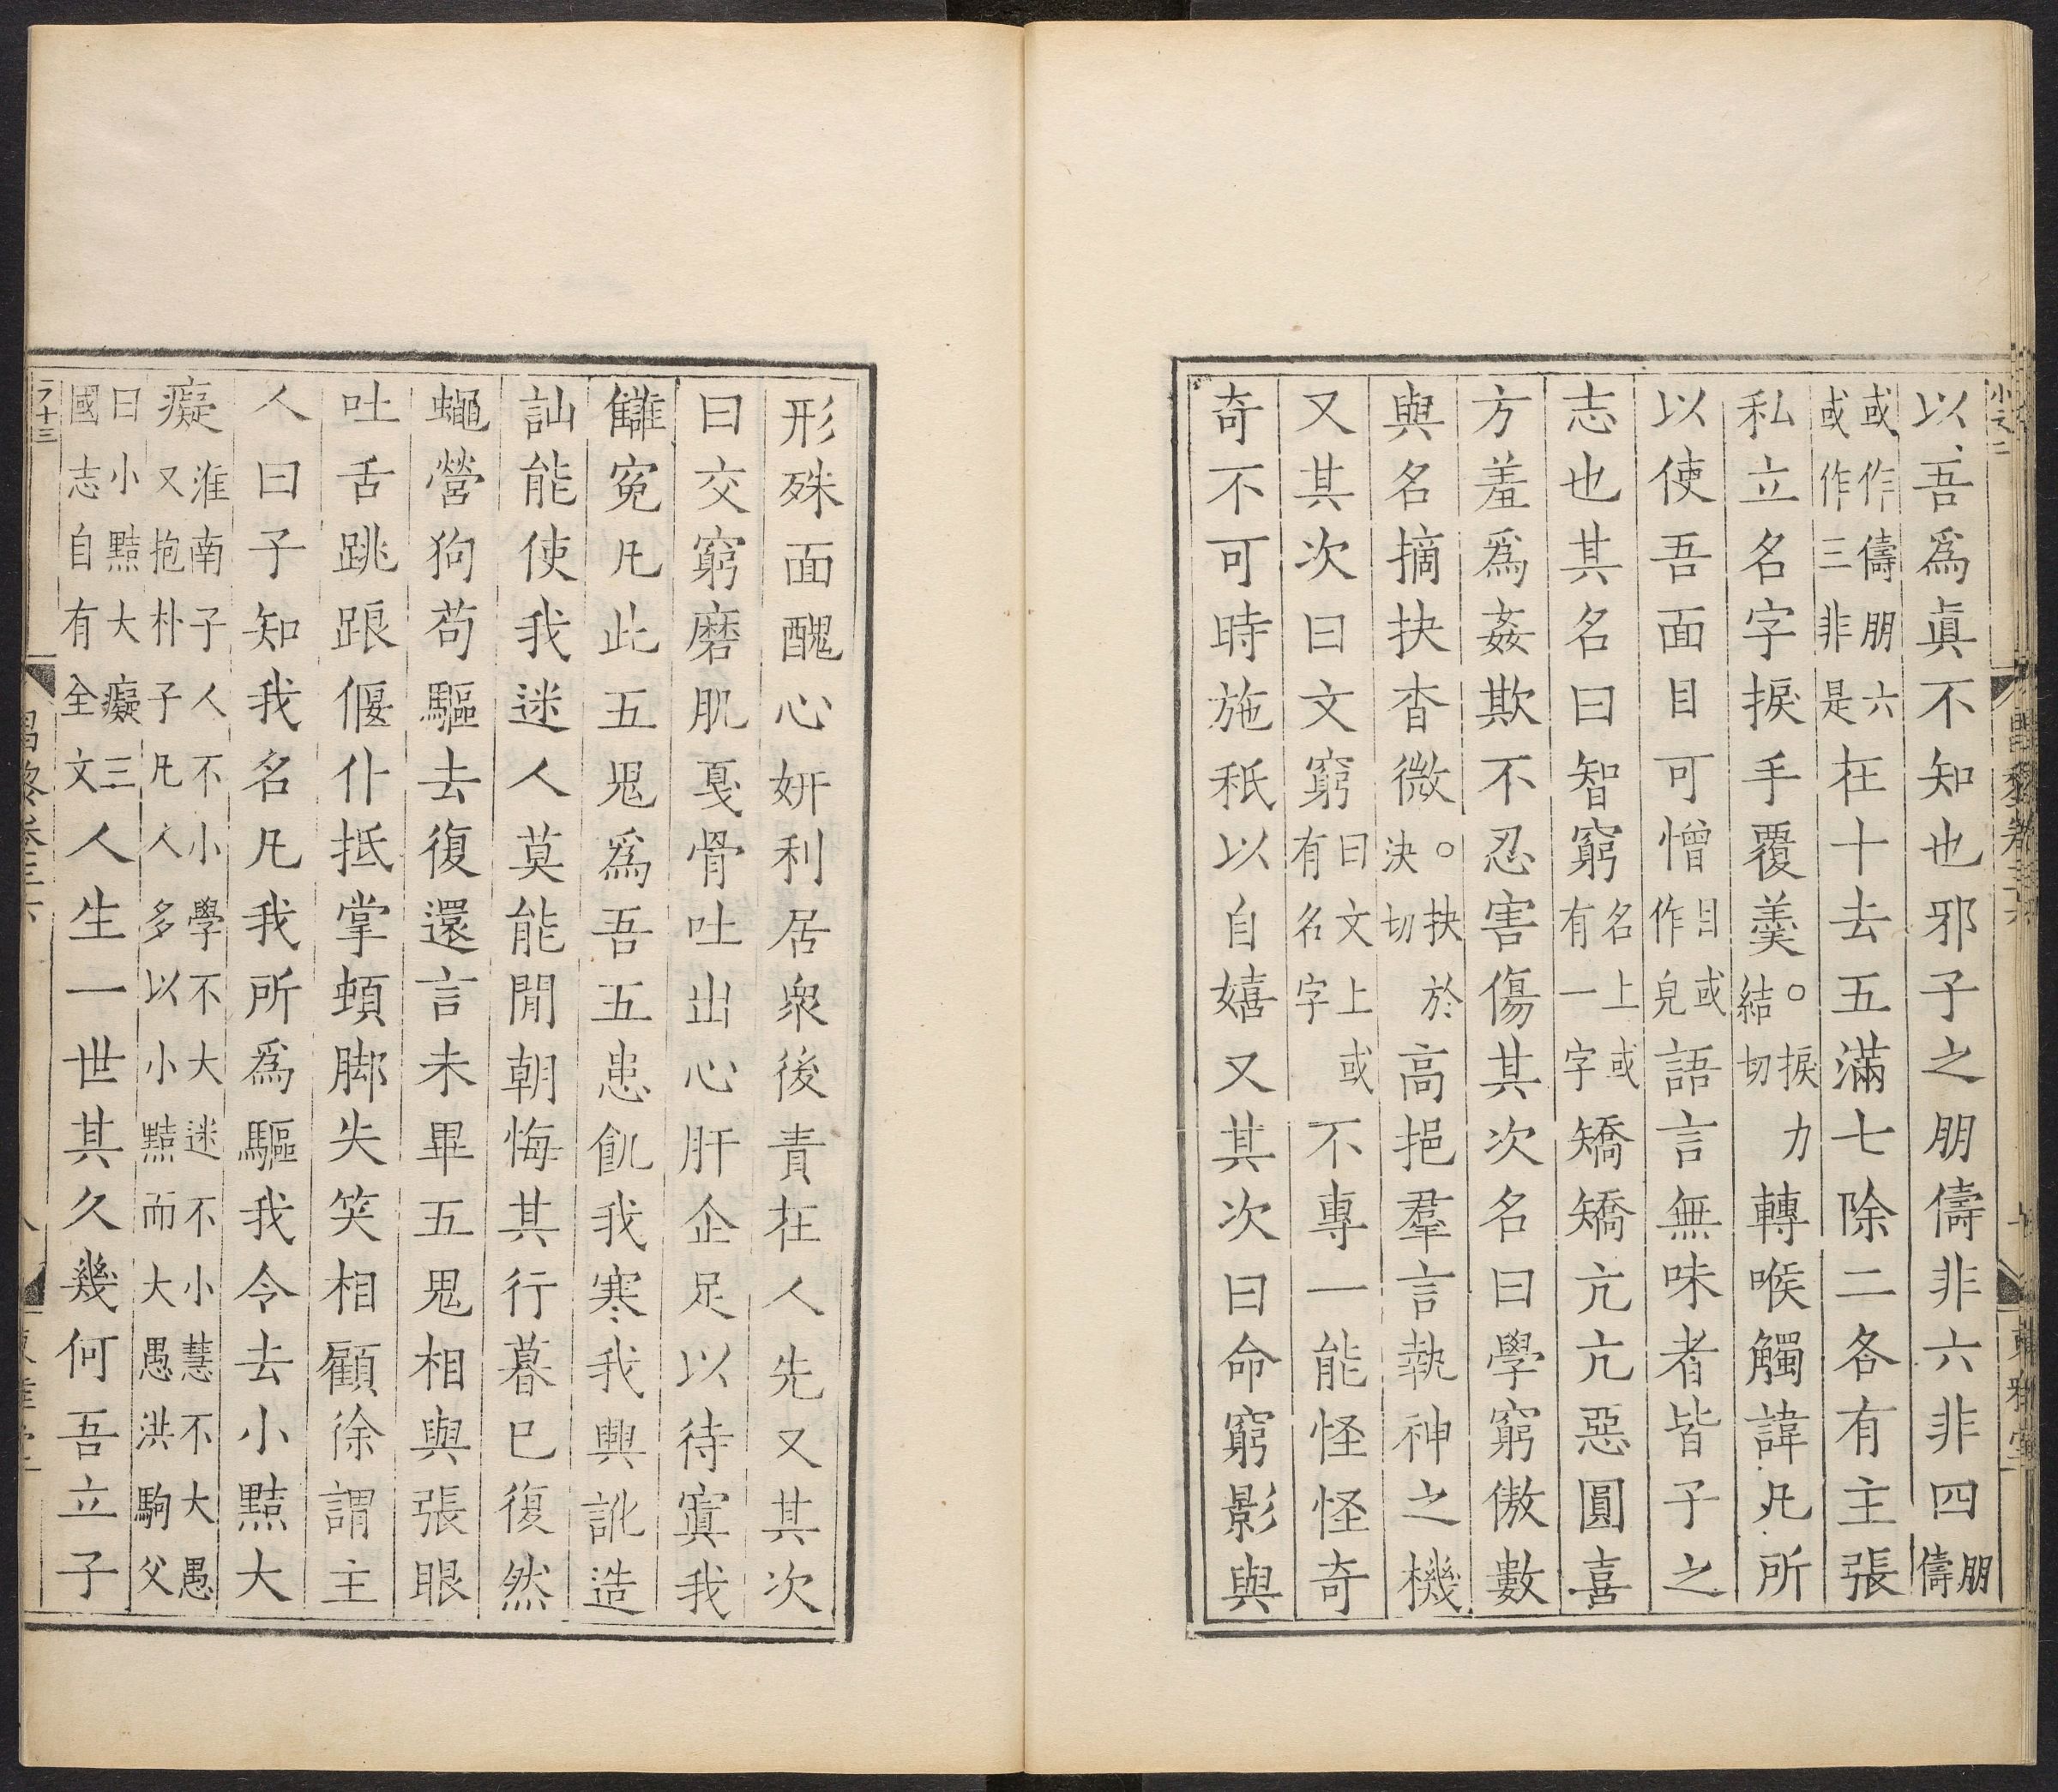 以吾爲眞不知也邪子之朋儔非六非四朋儔
或作儔朋六或作三非是在十去五滿七除二各有主張
私立名字捩手覆羹○捩力結切轉喉觸諱凡所
以使吾面目可憎目或作皃語言無味者皆子之
志也其名曰智窮名上或有一字矯矯亢亢惡圓喜
方羞爲姦欺不忍害傷其次名曰學窮傲數
與名摘抉杳微○抉於決切高挹羣言執神之機
又其次曰文窮曰文上或有名字不專一能怪怪奇
奇不可時施秖以自嬉又其次曰命窮影與
形殊面醜心姸利居衆後責在人先又其次
曰交窮磨肌戞骨吐出心肝企足以待寘我
讎寃凡此五鬼爲吾五患飢我寒我興訛造
訕能使我迷人莫能閒朝悔其行暮已復然
蠅營狗苟驅去復還言未畢五鬼相與張眼
吐舌跳踉偃仆抵掌頓脚失笑相顧徐謂主
人曰子知我名凡我所爲驅我令去小黠大
癡淮南子人不小學不大迷不小慧不大愚又抱朴子凡人多以小黠而大愚洪駒父
曰小黠大癡三國志自有全文人生一世其久幾何吾立子